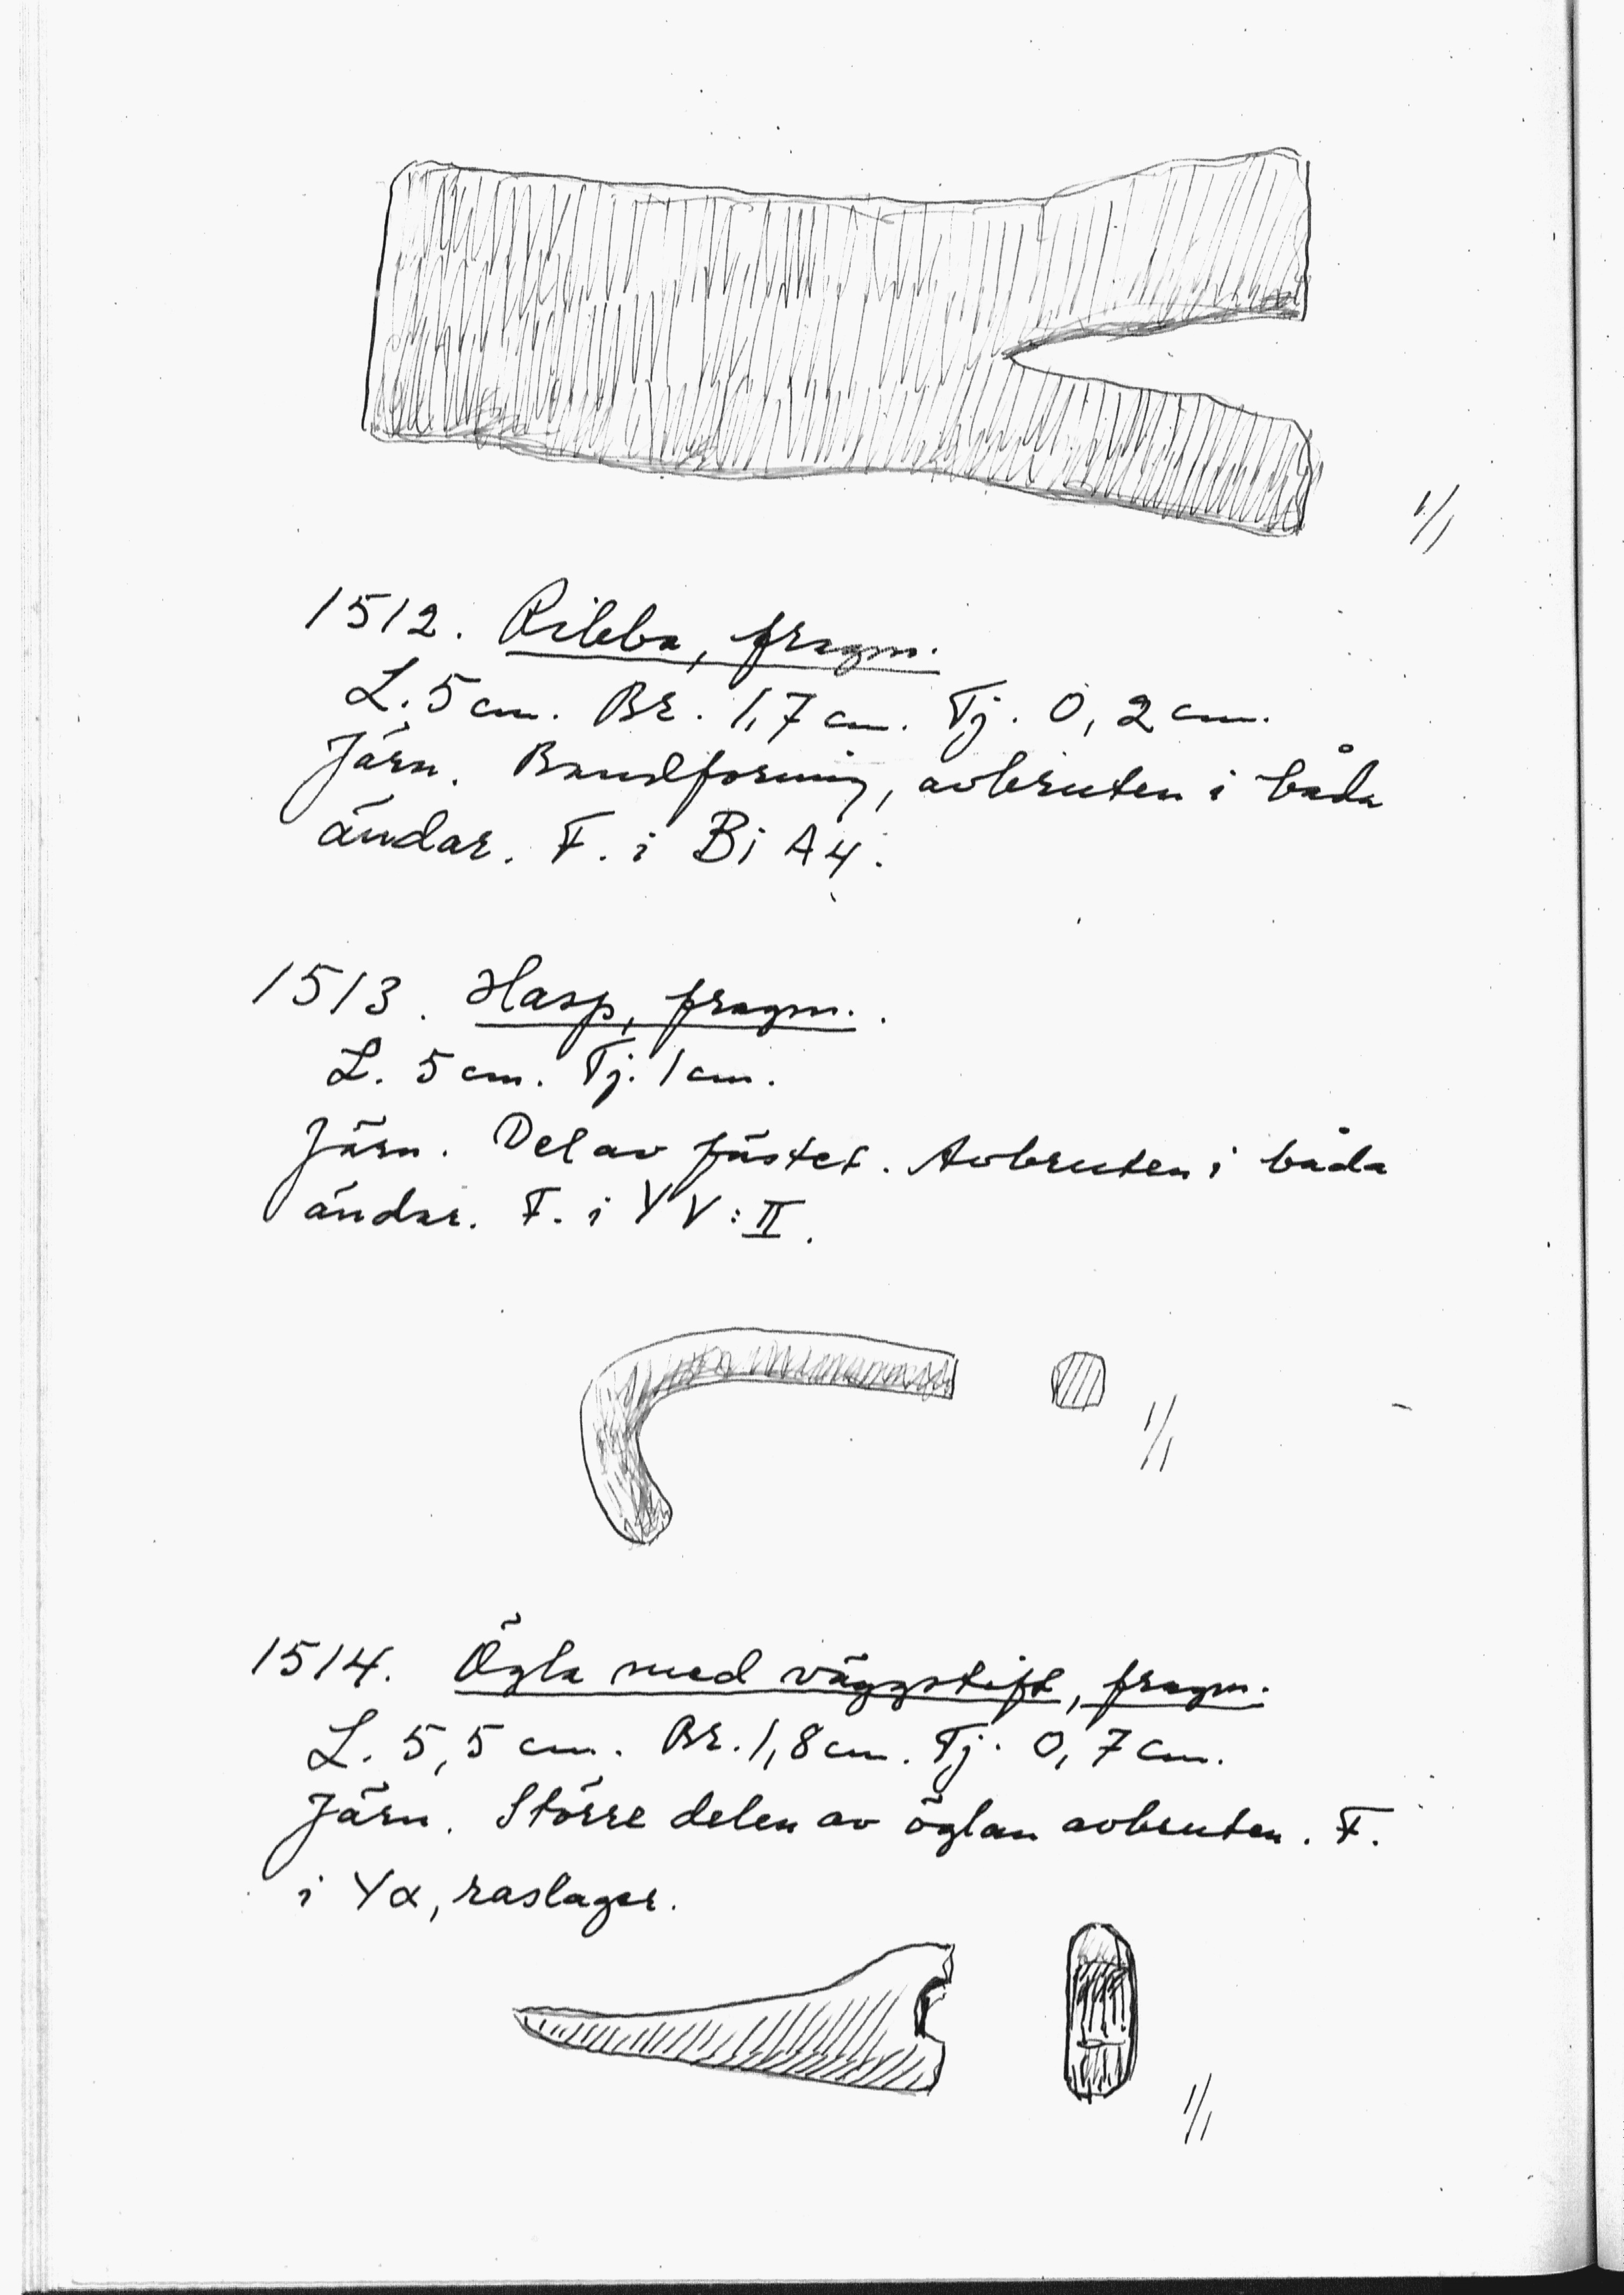 1/1
1512. Ribba, fragm.
L. 5 cm. Br. 1,7 cm. Tj. 0,2 cm.
Järn. Bandformig, avbruten i båda
ändar. F. i Bi A4.
1513. Hasp, fragm..
L. 5 cm. Tj. 1 cm.
Järn. Del av fästet. Avbruten i båda
ändar. F. i YV:II.
1/1
1514. Ögla med väggstift, fragm.
L. 5,5 cm. Br. 1,8 cm. Tj. 0,7 cm.
Järn. Större delen av öglan avbruten. F.
i Yα, raslager.
1/1